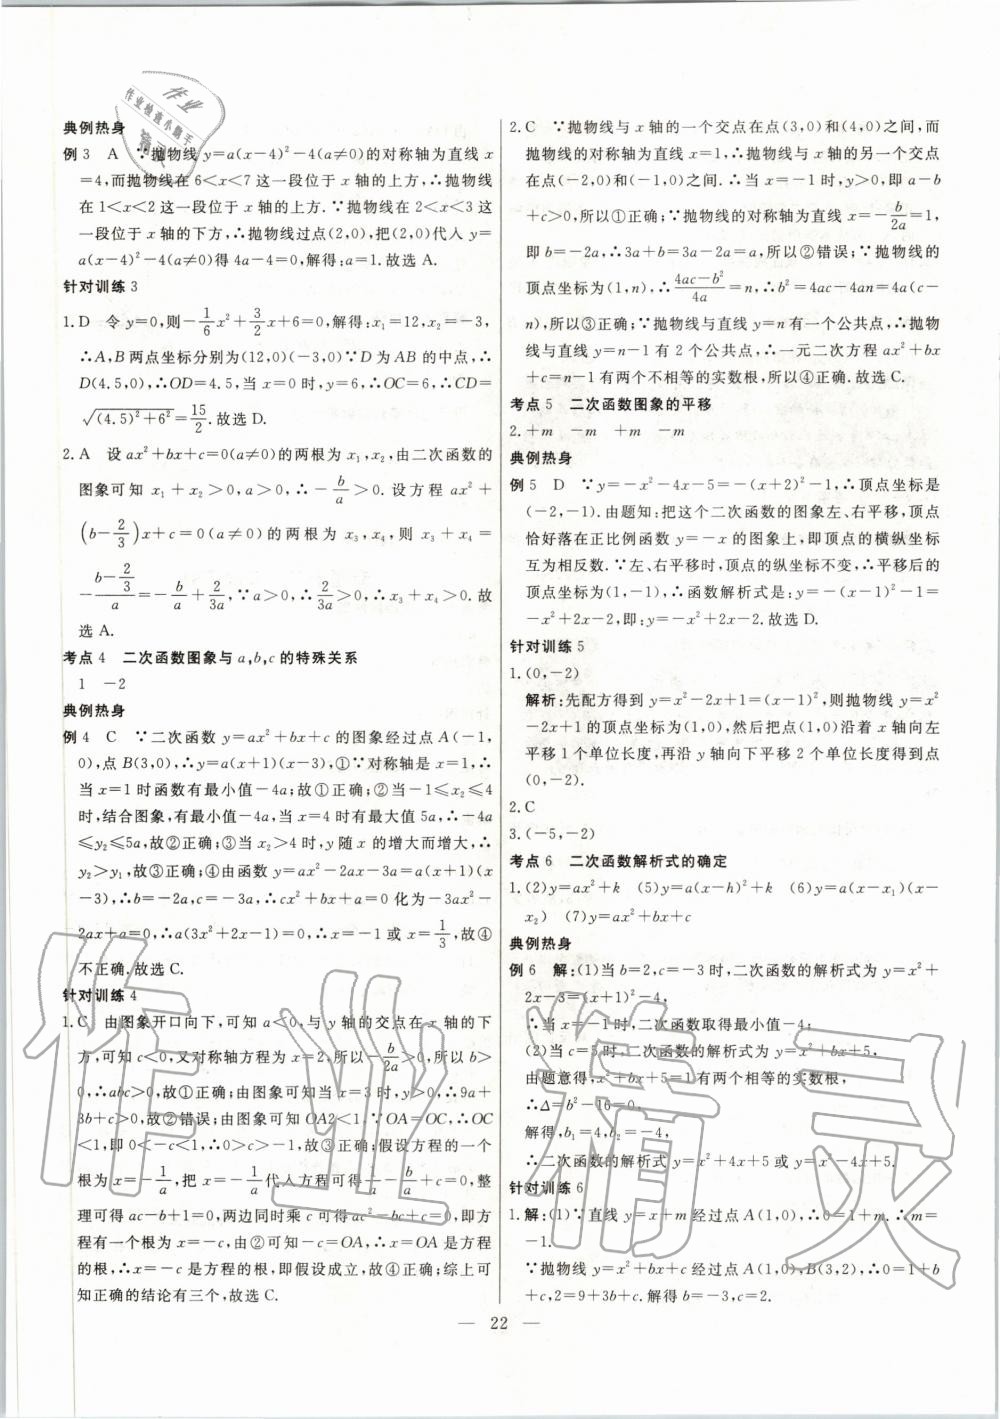 作业
作业检查小助手
精灵
典例热身
例 3 A ∵抛物线 y=a(x-4)²-4(a≠0)的对称轴为直线 x
=4,而抛物线在 6<x<7 这一段位于 x 轴的上方,∴抛物线
在 1<x<2 这一段位于 x 轴的上方.∵抛物线在 2<x<3 这
一段位于 x 轴的下方,∴抛物线过点(2,0),把(2,0)代入 y=
a(x-4)²-4(a≠0)得 4a-4=0,解得:a=1.故选 A.
针对训练 3
1.D 令 y=0,则-1/6x²+3/2x+6=0,解得:x₁=12,x₂=-3,
∴A,B 两点坐标分别为(12,0)(-3,0)∵D 为 AB 的中点,∴
D(4.5,0),∴OD=4.5,当 x=0 时,y=6,∴OC=6,∴CD=
√((4.5)²+6²)=15/2.故选 D.
2.A 设 ax²+bx+c=0(a≠0)的两根为 x₁,x₂,由二次函数的
图象可知 x₁+x₂>0,a>0,∴-b/a>0.设方程 ax²+
(b-2/3)x+c=0(a≠0)的两根为 x₃,x₄,则 x₃+x₄=
-(b-2/3)/a=-b/a+2/3a,∵a>0,∴2/3a>0,∴x₃+x₄>0.故
选 A.
考点 4 二次函数图象与 a,b,c 的特殊关系
1 -2
典例热身
例 4 C ∵二次函数 y=ax²+bx+c 的图象经过点 A(-1,
0),点 B(3,0),∴y=a(x+1)(x-3),①∵对称轴是 x=1,∴
当 x=1 时函数有最小值-4a;故①正确;②当-1≤x₂≤4
时,结合图象,当 x=4 时有最大值 5a,∴-4a
≤y₂≤5a,故②正确;③当 x₂>4 时,y 随 x 的增大而增大,∴
y₂>y₁,故③正确;④∵y=ax²-2ax-3a=a(x+1)(x
-3),∴b=-2a,c=-3a,∴cx²+bx+a=0 化为-3ax²-
2ax+a=0,∴a(3x²+2x-1)=0,∴x=-1 或 x=1/3,故④
不正确.故选 C.
针对训练 4
1.C 由图象开口向下,可知 a<0,与 y 轴的交点在 x 轴的下
方,可知 c<0,又对称轴方程为 x=2,所以-b/2a>0,所以 b>
0,∴abc>0,故①正确;由图象可知当 x=3 时,y>0,∴9a+
3b+c>0,故②错误;由图象可知 OA2<1.∵OA=OC,∴OC
<1,即 0<-c<1,∴0>c>-1,故③正确;假设方程的一个
根为 x=-1/a,把 x=-1/a代入方程可得1/a-b/a+c=0,整
理可得 ac-b+1=0,两边同时乘 c 可得 ac²-bc+c=0,即方
程有一个根为 x=-c,由②可知-c=OA,∴x=OA 是方程
的根,∴x=-c 是方程的根,即假设成立,故④正确;综上可
知正确的结论有三个,故选 C.
2.C ∵抛物线与 x 轴的一个交点在点(3,0)和(4,0)之间,而
抛物线的对称轴为直线 x=1,∴抛物线与 x 轴的另一个交点
在点(-2,0)和(-1,0)之间.∴当 x=-1 时,y>0,即 a-b
+c>0,所以①正确;∵抛物线的对称轴为直线 x=-b/2a=1,
即 b=-2a,∴3a+b=3a-2a=a,所以②错误;∵抛物线的
顶点坐标为(1,n),∴(4ac-b²)/4a=n,∴b²=4ac-4an=4a(c-
n),所以③正确;∵抛物线与直线 y=n 有一个公共点,∴抛物
线与直线 y=n-1 有 2 个公共点,∴一元二次方程 ax²+bx
+c=n-1 有两个不相等的实数根,所以④正确.故选 C.
考点 5 二次函数图象的平移
2.+m -m +m -m
典例热身
例 5 D ∵y=-x²-4x-5=-(x+2)²-1,∴顶点坐标是
(-2,-1).由题知:把这个二次函数的图象左、右平移,顶点
恰好落在正比例函数 y=-x 的图象上,即顶点的横纵坐标
互为相反数.∵左、右平移时,顶点的纵坐标不变,∴平移后的
顶点坐标为(1,-1),∴函数解析式是:y=-(x-1)²-1=
-x²+2x-2,即:y=-x²+2x-2.故选 D.
针对训练 5
1.(0,-2)
解析:先配方得到 y=x²-2x+1=(x-1)²,则抛物线 y=x²
-2x+1 的顶点坐标为(1,0),然后把点(1,0)沿着 x 轴向左
平移 1 个单位长度,再沿 y 轴向下平移 2 个单位长度得到点
(0,-2).
2.C
3.(-5,-2)
考点 6 二次函数解析式的确定
1.(2)y=ax²+k (5)y=a(x-h)²+k (6)y=a(x-x₁)(x-
x₂) (7)y=ax²+bx+c
典例热身
例 6 解:(1)当 b=2,c=-3 时,二次函数的解析式为 y=x²+
2x-3=(x+1)²-4,
∴当 x=-1 时,二次函数取得最小值-4;
(2)当 c=5 时,二次函数的解析式为 y=x²+bx+5,
由题意得,x²+bx+5=1 有两个相等的实数根,
∴Δ=b²-16=0,
解得,b₁=4,b₂=-4,
∴二次函数的解析式 y=x²+4x+5 或 y=x²-4x+5.
针对训练 6
1.解:(1)∵直线 y=x+m 经过点 A(1,0),∴0=1+m.∴m=
-1.
∵抛物线 y=x²+bx+c 经过点 A(1,0),B(3,2),∴0=1+b
+c,2=9+3b+c.解得 b=-3,c=2.
— 22 —
作业精灵